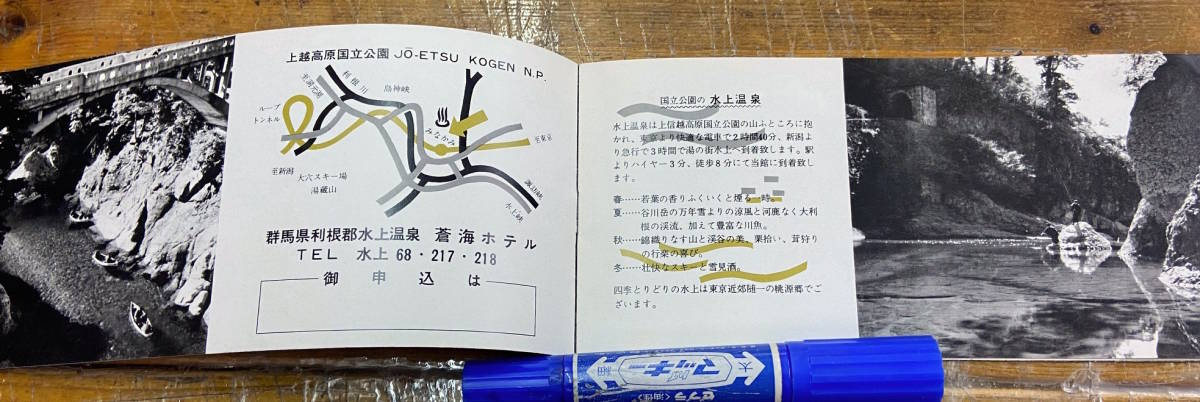 上越高原国立公園 JŌ-ETSU KOGEN N.P.
利根川
鳥神峡
ループ
トンネル
みなかみ
至東京
至新潟
大穴スキー場
湯蔵山
諏訪峡
水上峡
群馬県利根郡水上温泉 蒼海ホテル
TEL 水上 68・217・218
御申込は
国立公園の 水上温泉
水上温泉は上信越高原国立公園の山ふところに抱
かれ、東京より快適な電車で2時間40分、新潟よ
り急行で3時間で湯の街水上へ到着致します。駅
よりハイヤー3分、徒歩8分にて当館に到着致し
ます。
春……若葉の香りふくいくと煙る一時。
夏……谷川岳の万年雪よりの涼風と河鹿なく大利
根の渓流、加えて豊富な川魚。
秋……錦織りなす山と渓谷の美、栗拾い、茸狩り
の行楽の喜び。
冬……壮快なスキーと雪見酒。
四季とりどりの水上は東京近郊随一の桃源郷でご
ざいます。
細 マッキー 太
ゼブラ〈油性〉